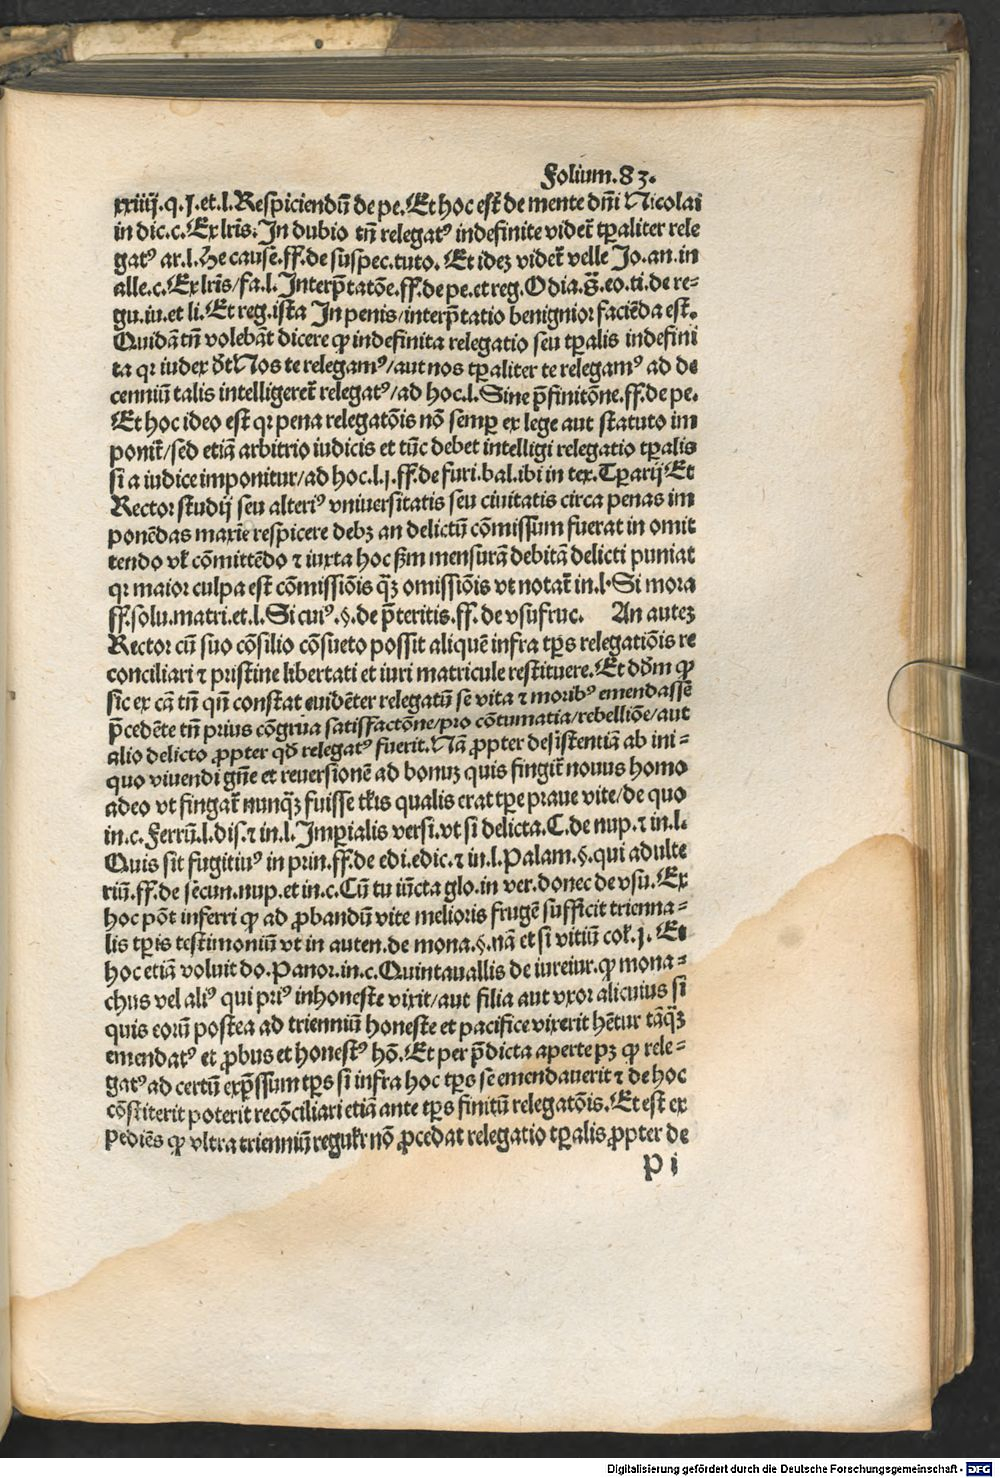 Folium.83.
xxiiij.q.j.et.l.Respiciendū de pe.Et hoc est̄ de mente dn̄i Nicolai
in dic.c.Ex lr̄is.In dubio tn̄ relegatꝰ indefinite videt̄ tꝑaliter rele
gatꝰ ar.l. cause.ff.de suspec.tuto. Et idez videt̄ velle Jo.an.in
alle.c.Ex lr̄is/fa.l.Interp̄tatōe.ff.de pe.et reg.Odia.S̄.eo.ti.de re-
gu.iu.et li.Et reg.ista In penis/interp̄tatio benignior faciēda est.
Quidā tn̄ volebāt dicere ꝙ indefinita relegatio seu tꝑalis indefini
ta qꝛ iudex dt̄ Nos te relegamꝰ/aut nos tꝑaliter te relegamꝰ ad de
cenniū talis intelligeret̄ relegatꝰ/ad hoc.l.Sine p̄finitōne.ff.de pe.
Et hoc ideo est qꝛ pena relegatōis nō semꝑ ex lege aut statuto im
ponit̄/sed etiā arbitrio iudicis et tūc debet intelligi relegatio tꝑalis
si a iudice imponitur/ad hoc.l.j.ff.de furi.bal.ibi in tex.Tꝑarij Et
Rector studij seu alteriꝰ vniuersitatis seu ciuitatis circa penas im
ponēdas maxīe respicere debꝫ an delictū cōmissum fuerat in omit
tendo vl̄ cōmittēdo ⁊ iuxta hoc ẜm mensurā debitā delicti puniat
qꝛ maior culpa est cōmissiōis q̄ꝫ omissiōis vt notat̄ in.l.Si mora
ff.solu.matri.et.l.Si cuiꝰ.§.de p̄teritis.ff.de vsufruc. An autez
Rector cū suo cōsilio cōsueto possit aliquē infra tꝑs relegatiōis re
conciliari ⁊ pristine libertati et iuri matricule restituere.Et dd̄m ꝙ
sic ex cā tn̄ qn̄ constat euidēter relegatū se vita ⁊ moribꝰ emendasse
p̄cedēte tn̄ prius cōgrua satisfactōne/pro cōtumatia/rebelliōe/aut
alio delicto ꝓpter qd̄ relegatꝰ fuerit.Nā ꝓpter desistentiā ab ini-
quo viuendi gn̄e et reuersionē ad bonuz quis fingit̄ nouus homo
adeo vt fingat̄ nunq̄ꝫ fuisse tl̄is qualis erat tꝑe praue vite/de quo
in.c.Ferrū.l.dis.⁊ in.l.Imꝑialis versi.vt si delicta.C.de nup.⁊ in.l.
Quis sit fugitiuꝰ in prin.ff.de edi.edic.⁊ in.l.Palam.§.qui adulte
riū.ff.de secun.nup.et in.c.Cū tu iūcta glo.in ver.donec de vsu.Ex
hoc pōt inferri ꝙ ad ꝓbandū vite melioris frugē sufficit trienna-
lis tꝑis testimoniū vt in auten.de mona.§.nā et si vitiū col̄.j. Et
hoc etiā voluit do.Panor.in.c.Quintauallis de iureiur.ꝙ mona-
chus vel aliꝰ qui priꝰ inhoneste vixit/aut filia aut vxor alicuius si
quis eorū postea ad trienniū honeste et pacifice vixerit hētur tāq̄ꝫ
emendatꝰ et ꝓbus et honestꝰ hō.Et per p̄dicta aperte pꝫ ꝙ rele-
gatꝰ ad certū exp̄ssum tꝑs si infra hoc tꝑs se emendauerit ⁊ de hoc
cōstiterit poterit recōciliari etiā ante tꝑs finitū relegatōis.Et est ex
pediēs ꝙ vltra trienniū regul̄r nō ꝓcedat relegatio tꝑalis ꝓpter de
P i
Digitalisierung gefördert durch die Deutsche Forschungsgemeinschaft - DFG